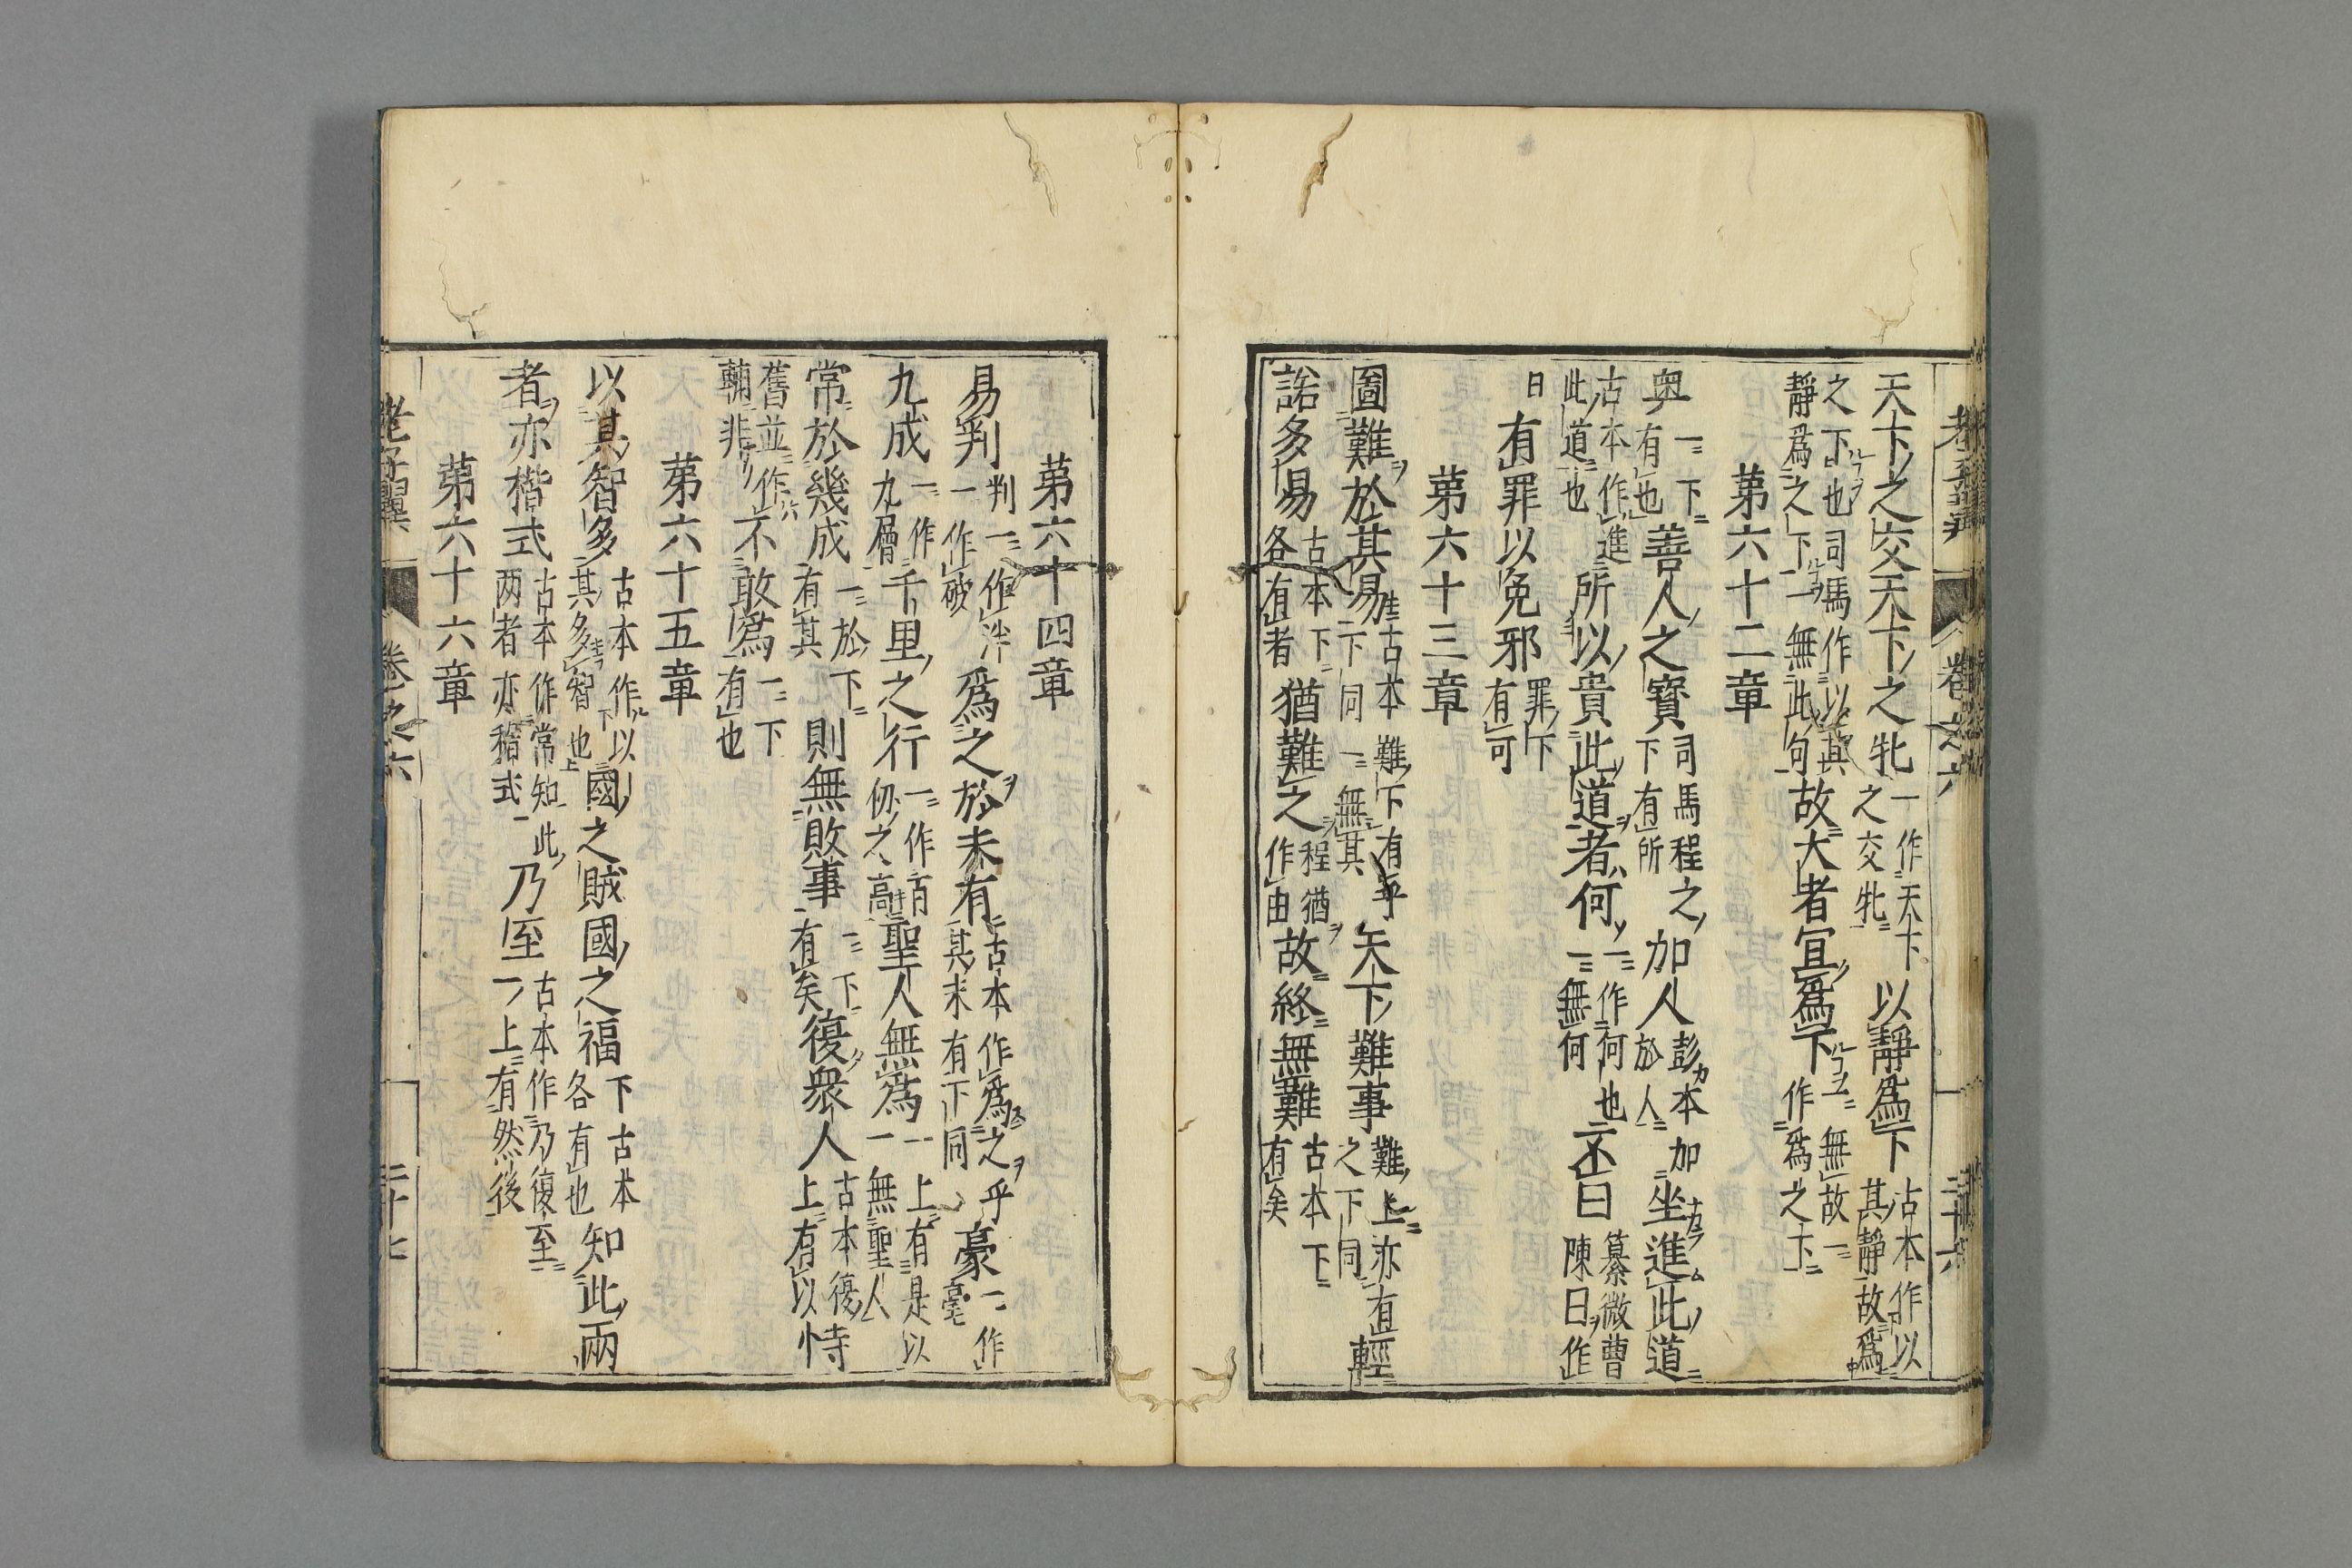 天下之交天下之牝一作天下之交牝以靜爲下古本作以其靜故爲
之下也司馬作以其靜爲之下一無此句故大者宜爲下一無故一作爲之下
第六十二章
奥一下有也善人之寶司馬程之下有所加人彭本加於人坐進此道
古本作進此道也所以貴此道者何一作何也一無何不曰纂微曹陳曰作
日有罪以免邪罪下有可
第六十三章
圖難於其易古本難下有乎下同一無其天下難事難上亦有之下同輕
諾多易古本下各有者猶難之程猶作由故終無難古本下有矣
老子翼 卷之六 二十六
第六十四章
易判判一作泮一作破爲之於未有古本作爲之乎其未有下同豪一作毫
九成一作九層千里之行一作百仞之高聖人無爲一上有是以一無聖人
常於幾成一於下有其則無敗事一下有矣復衆人古本復上有以恃
舊並作輔非不敢爲一下有也
第六十五章
以其智多古本作以其多智也國之賊國之福下古本各有也知此兩
者亦楷式古本作常知此两者亦稽式乃至古本作乃復至一上有然後
第六十六章
老子翼 卷之六 二十七